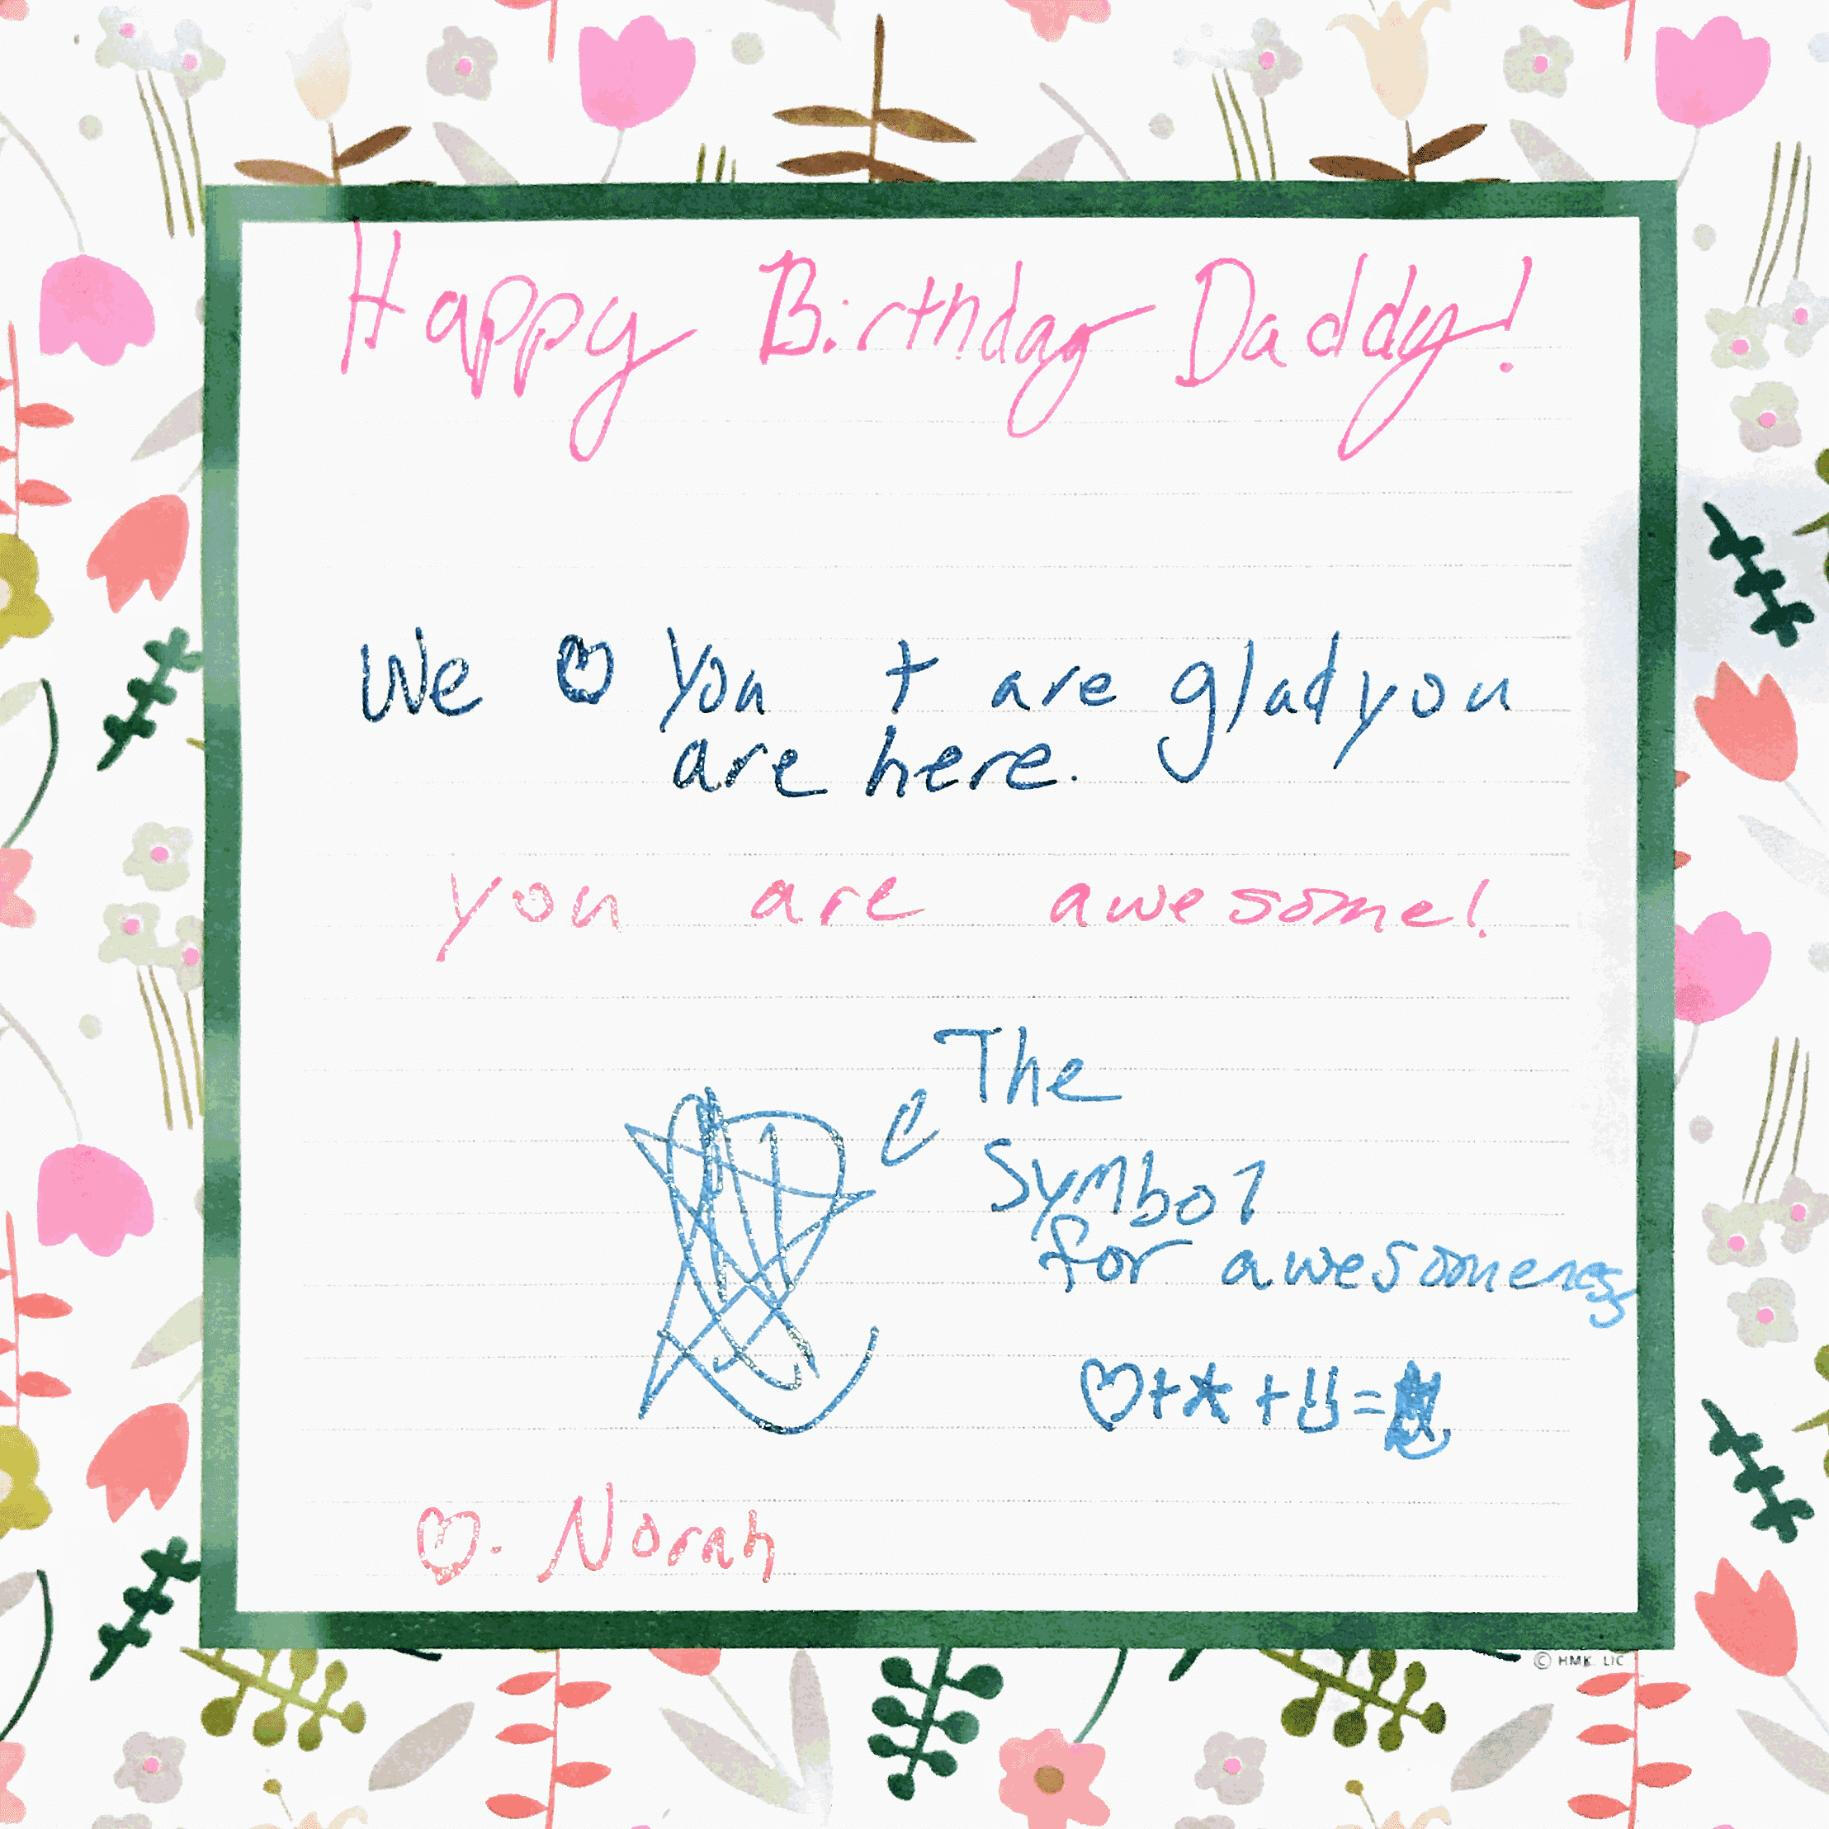 Happy Birthday Daddy!
We ♡ You + are glad you
are here.
you are awesome!
The
Symbol
for awesomeness
♡+★+ü=
♡. Norah
© HMK. LIC